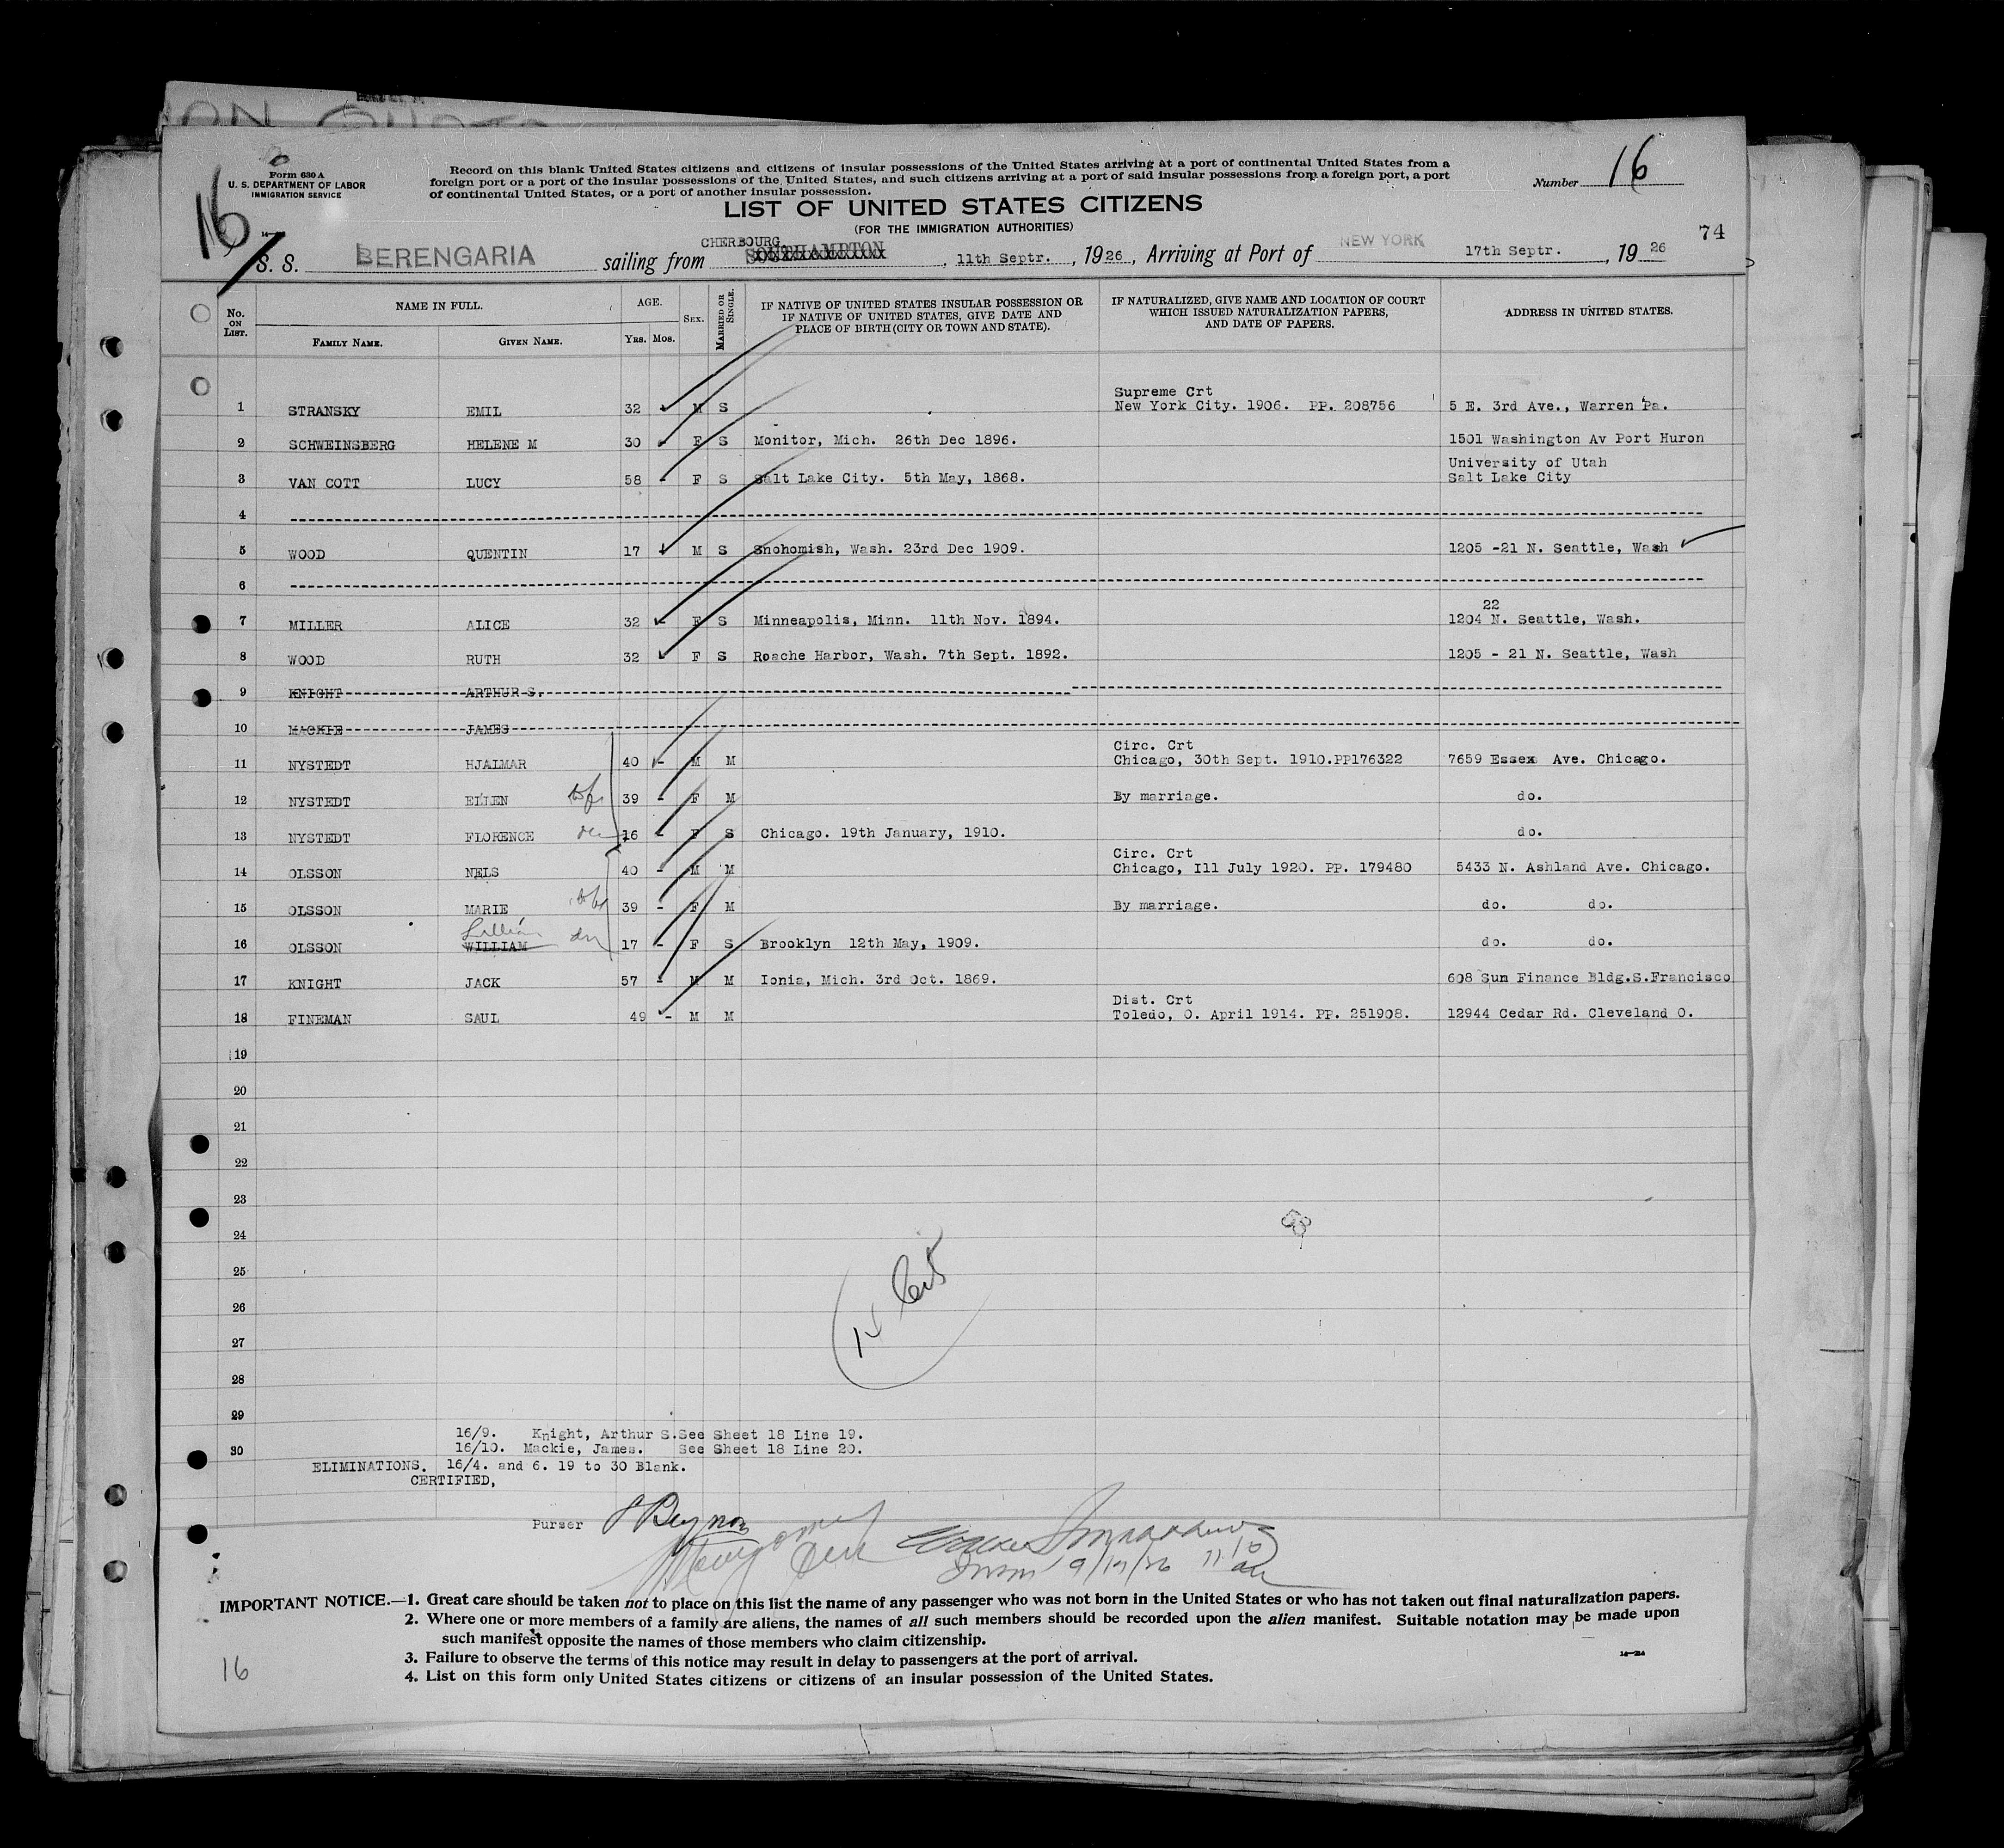 16
Form 630 A
U. S. DEPARTMENT OF LABOR
IMMIGRATION SERVICE
Record on this blank United States citizens and citizens of insular possessions of the United States arriving at a port of continental United States from a
foreign port or a port of the insular possessions of the United States, and such citizens arriving at a port of said insular possessions from a foreign port, a port
of continental United States, or a port of another insular possession.
Number 16
LIST OF UNITED STATES CITIZENS
(FOR THE IMMIGRATION AUTHORITIES)
74
S. S. BERENGARIA sailing from CHERBOURG. SOUTHAMPTON, 11th Septr., 1926, Arriving at Port of NEW YORK 17th Septr., 1926
No. ON LIST. NAME IN FULL. AGE. SEX. MARRIED OR SINGLE. IF NATIVE OF UNITED STATES INSULAR POSSESSION OR IF NATIVE OF UNITED STATES, GIVE DATE AND PLACE OF BIRTH (CITY OR TOWN AND STATE). IF NATURALIZED, GIVE NAME AND LOCATION OF COURT WHICH ISSUED NATURALIZATION PAPERS, AND DATE OF PAPERS. ADDRESS IN UNITED STATES.
FAMILY NAME. GIVEN NAME. YRS. MOS.
Supreme Crt
1 STRANSKY EMIL 32 M S New York City. 1906. PP. 208756 5 E. 3rd Ave., Warren Pa.
2 SCHWEINSBERG HELENE M 30 F S Monitor, Mich. 26th Dec 1896. 1501 Washington Av Port Huron
University of Utah
3 VAN COTT LUCY 58 F S Salt Lake City. 5th May, 1868. Salt Lake City
4
5 WOOD QUENTIN 17 M S Snohomish, Wash. 23rd Dec 1909. 1205 -21 N. Seattle, Wash
6
22
7 MILLER ALICE 32 F S Minneapolis, Minn. 11th Nov. 1894. 1204 N. Seattle, Wash.
8 WOOD RUTH 32 F S Rosche Harbor, Wash. 7th Sept. 1892. 1205 - 21 N. Seattle, Wash
9 KNIGHT ARTHUR S.
10 MACKIE JAMES
Circ. Crt
11 NYSTEDT HJALMAR 40 - M M Chicago, 30th Sept. 1910.PP176322 7659 Essex Ave. Chicago.
12 NYSTEDT ELLEN 39 - F M By marriage. do.
13 NYSTEDT FLORENCE 16 - F S Chicago. 19th January, 1910. do.
Circ. Crt
14 OLSSON NELS 40 - M M Chicago, Ill July 1920. PP. 179480 5433 N. Ashland Ave. Chicago.
15 OLSSON MARIE 39 - F M By marriage. do. do.
Lillian
16 OLSSON WILLIAM 17 - F S Brooklyn 12th May, 1909. do. do.
17 KNIGHT JACK 57 - M M Ionia, Mich. 3rd Oct. 1869. 608 Sun Finance Bldg.S.Francisco
Dist. Crt
18 FINEMAN SAUL 49 - M M Toledo, O. April 1914. PP. 251908. 12944 Cedar Rd. Cleveland O.
19
20
21
22
23
24
25
26
27
28
29
16/9. Knight, Arthur S.See Sheet 18 Line 19.
30 16/10. Mackie, James. See Sheet 18 Line 20.
ELIMINATIONS. 16/4. and 6. 19 to 30 Blank.
CERTIFIED,
Purser
9/17/26 11.10
IMPORTANT NOTICE.—1. Great care should be taken not to place on this list the name of any passenger who was not born in the United States or who has not taken out final naturalization papers.
2. Where one or more members of a family are aliens, the names of all such members should be recorded upon the alien manifest. Suitable notation may be made upon
such manifest opposite the names of those members who claim citizenship.
3. Failure to observe the terms of this notice may result in delay to passengers at the port of arrival.
4. List on this form only United States citizens or citizens of an insular possession of the United States.
16